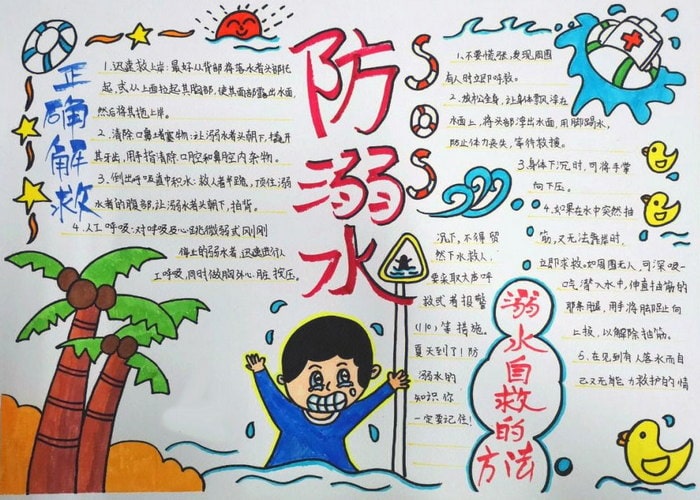 防溺水
SOS
正确解救
1.迅速救上岸:最好从背部将落水者头部托
起,或从上面拉起其胸部,使其面部露出水面,
然后将其拖上岸。
2.清除口鼻堵塞物:让溺水者头朝下,撬开
其牙齿,用手指清除口腔和鼻腔内杂物。
3.倒出呼吸道中积水:救人者半跪,顶住溺
水者的腹部,让溺水者头朝下,拍背。
4.人工呼吸:对呼吸及心跳微弱或刚刚
停止的溺水者,迅速进行人
工呼吸,同时做胸外心脏按压。
溺水自救的方法
1.不要慌张,发现周围
有人时立即呼救。
2.放松全身,让身体飘浮在
水面上,将头部浮出水面,用脚踢水,
防止体力丧失,等待救援。
3.身体下沉时,可将手掌
向下压。
4.如果在水中突然抽
筋,又无法靠岸时,
立即求救。如周围无人,可深吸一
口气潜入水中,伸直抽筋的
那条腿,用手将脚趾向
上扳,以解除抽筋。
5.在见到有人落水而自
己又无能力救护的情
况下,不得贸
然下水救人,
要采取大声呼
救或者报警
(110)等措施。
夏天到了!防
溺水的
知识你
一定要记住!